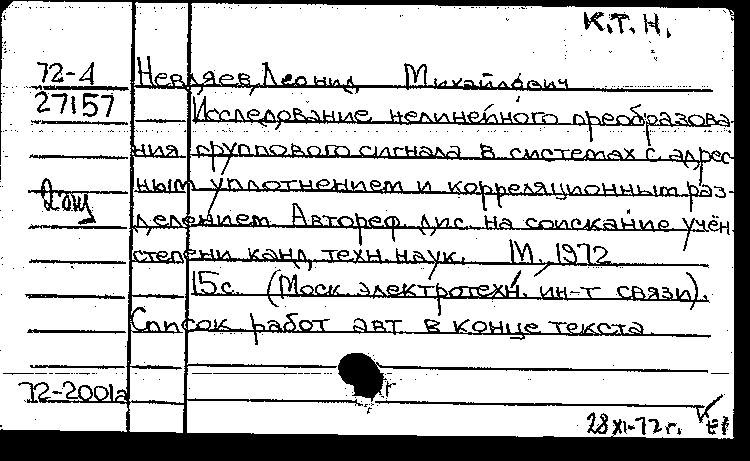 К.Т.Н.
72-4 Невдяев, Леонид Михайлович
27157 Исследование нелинейного преобразова-
ния группового сигнала в системах с адрес-
ным уплотнением и корреляционным раз-
делением Автореф дис. на соискание учён.
степени канд. техн. наук. М., 1972
15с. (Моск. электротехн. ин-т связи).
Список работ авт. в конце текста.
72-2001а
28 XI-72 г.